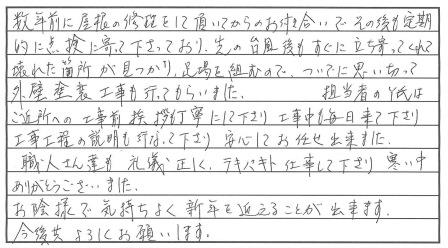 数年前に屋根の修理をして頂いてからのお付き合いで その後も定期
的に点検に寄って下さっており、先の台風後もすぐに立ち寄ってくれて
壊れた箇所が見つかり、足場を組むので、ついでに思い切って
外壁塗装工事も行ってもらいました。 担当者のY氏は
ご近所への工事前挨拶も丁寧にして下さり 工事中も毎日来て下さり
工事工程の説明も行なって下さり 安心してお任せ出来ました。
職人さん達も 礼儀正しく、テキパキト仕事して下さり 寒い中
ありがとうございました。
お陰様で気持ちよく新年を迎えることが出来ます。
今後共よろしくお願いします。